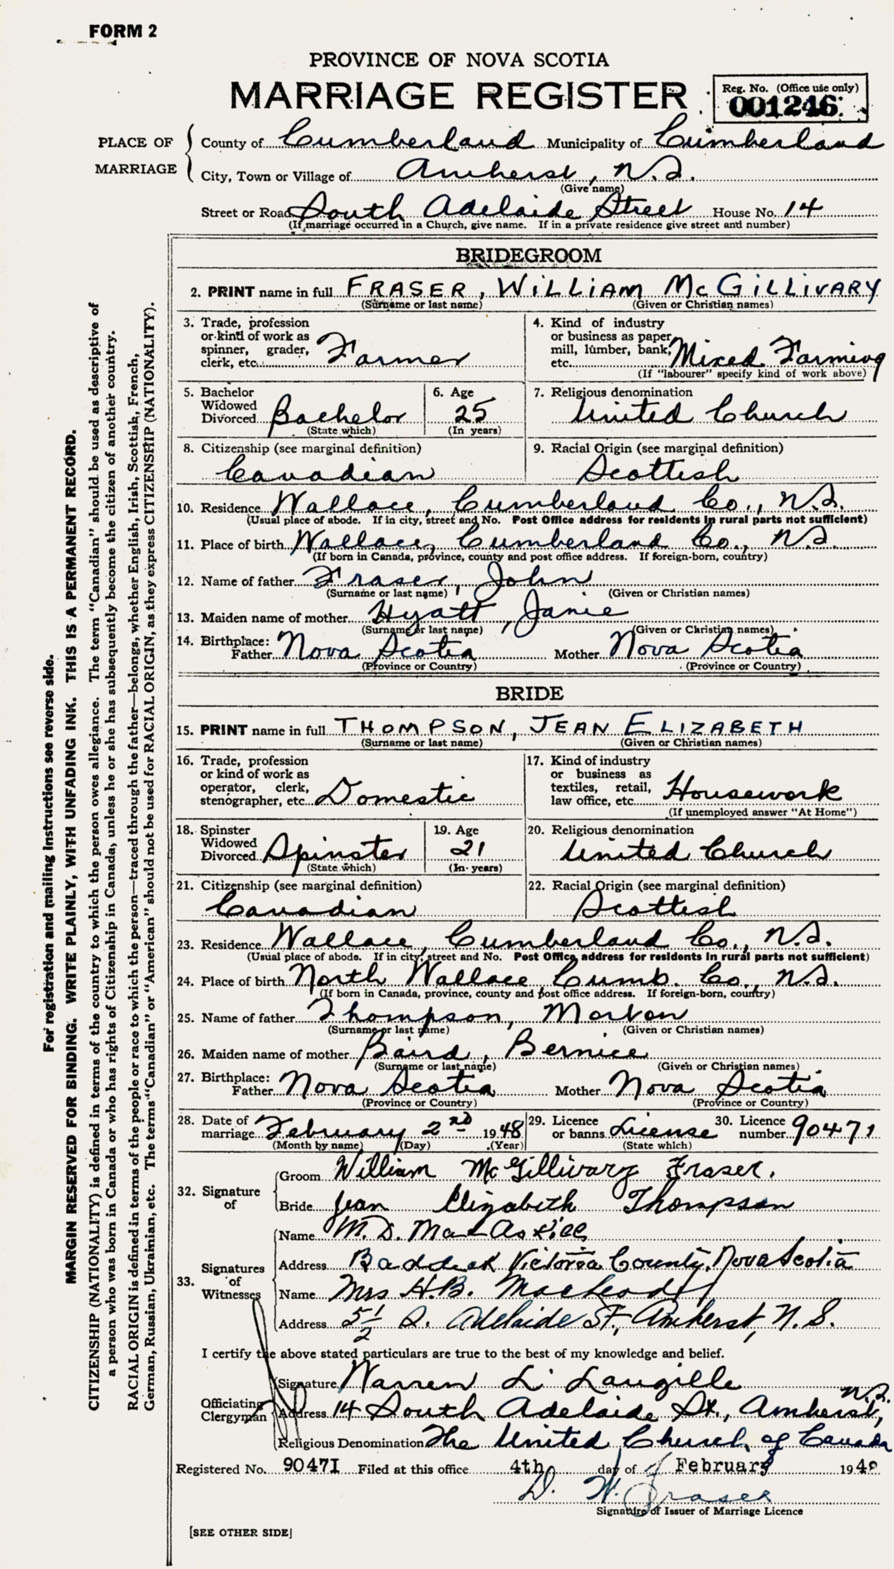 FORM 2
PROVINCE OF NOVA SCOTIA
MARRIAGE REGISTER
Reg. No. (Office use only)
001246
PLACE OF MARRIAGE
County of Cumberland Municipality of Cumberland
City, Town or Village of Amherst, N.S.
(Give name)
Street or Road South Adelaide Street House No. 14
(If marriage occurred in a Church, give name. If in a private residence give street and number)
BRIDEGROOM
2. PRINT name in full FRASER, WILLIAM McGILLIVARY
(Surname or last name) (Given or Christian names)
3. Trade, profession
or kind of work as
spinner, grader,
clerk, etc. Farmer
4. Kind of industry
or business as paper
mill, lumber, bank,
etc. Mixed Farming
(If "labourer" specify kind of work above)
5. Bachelor
Widowed
Divorced Bachelor
(State which)
6. Age
25
(In years)
7. Religious denomination
United Church
8. Citizenship (see marginal definition)
Canadian
9. Racial Origin (see marginal definition)
Scottish
10. Residence Wallace, Cumberland Co., N.S.
(Usual place of abode. If in city, street and No. Post Office address for residents in rural parts not sufficient)
11. Place of birth Wallace, Cumberland Co., N.S.
(If born in Canada, province, county and post office address. If foreign-born, country)
12. Name of father Fraser, John
(Surname or last name) (Given or Christian names)
13. Maiden name of mother Hyatt, Janie
(Surname or last name) (Given or Christian names)
14. Birthplace:
Father Nova Scotia Mother Nova Scotia
(Province or Country) (Province or Country)
BRIDE
15. PRINT name in full THOMPSON, JEAN ELIZABETH
(Surname or last name) (Given or Christian names)
16. Trade, profession
or kind of work as
operator, clerk,
stenographer, etc. Domestic
17. Kind of industry
or business as
textiles, retail,
law office, etc. Housework
(If unemployed answer "At Home")
18. Spinster
Widowed
Divorced Spinster
(State which)
19. Age
21
(In years)
20. Religious denomination
United Church
21. Citizenship (see marginal definition)
Canadian
22. Racial Origin (see marginal definition)
Scottish
23. Residence Wallace, Cumberland Co., N.S.
(Usual place of abode. If in city, street and No. Post Office address for residents in rural parts not sufficient)
24. Place of birth North Wallace Cumb. Co., N.S.
(If born in Canada, province, county and post office address. If foreign-born, country)
25. Name of father Thompson, Morton
(Surname or last name) (Given or Christian names)
26. Maiden name of mother Baird, Bernice
(Surname or last name) (Given or Christian names)
27. Birthplace:
Father Nova Scotia Mother Nova Scotia
(Province or Country) (Province or Country)
28. Date of
marriage February 2nd 1948
(Month by name) (Day) (Year)
29. Licence
or banns License
(State which)
30. Licence
number 90471
32. Signature of
Groom William McGillivary Fraser.
Bride Jean Elizabeth Thompson
33. Signatures of Witnesses
Name M. D. MacAskill
Address Baddeck Victoria County, Nova Scotia
Name Mrs H.B. MacLeod
Address 5½ S. Adelaide St, Amherst, N.S.
I certify the above stated particulars are true to the best of my knowledge and belief.
Officiating Clergyman
Signature Warren L. Langille
Address 14 South Adelaide St., Amherst, N.S.
Religious Denomination The United Church of Canada
Registered No. 90471 Filed at this office 4th day of February 1948
D. W. Fraser
Signature of Issuer of Marriage Licence
[SEE OTHER SIDE]
For registration and mailing instructions see reverse side.
MARGIN RESERVED FOR BINDING. WRITE PLAINLY, WITH UNFADING INK. THIS IS A PERMANENT RECORD.
CITIZENSHIP (NATIONALITY) is defined in terms of the country to which the person owes allegiance. The term "Canadian" should be used as descriptive of
a person who was born in Canada or who has rights of Citizenship in Canada, unless he or she has subsequently become the citizen of another country.
RACIAL ORIGIN is defined in terms of the people or race to which the person—traced through the father—belongs, whether English, Irish, Scottish, French,
German, Russian, Ukrainian, etc. The terms "Canadian" or "American" should not be used for RACIAL ORIGIN, as they express CITIZENSHIP (NATIONALITY).